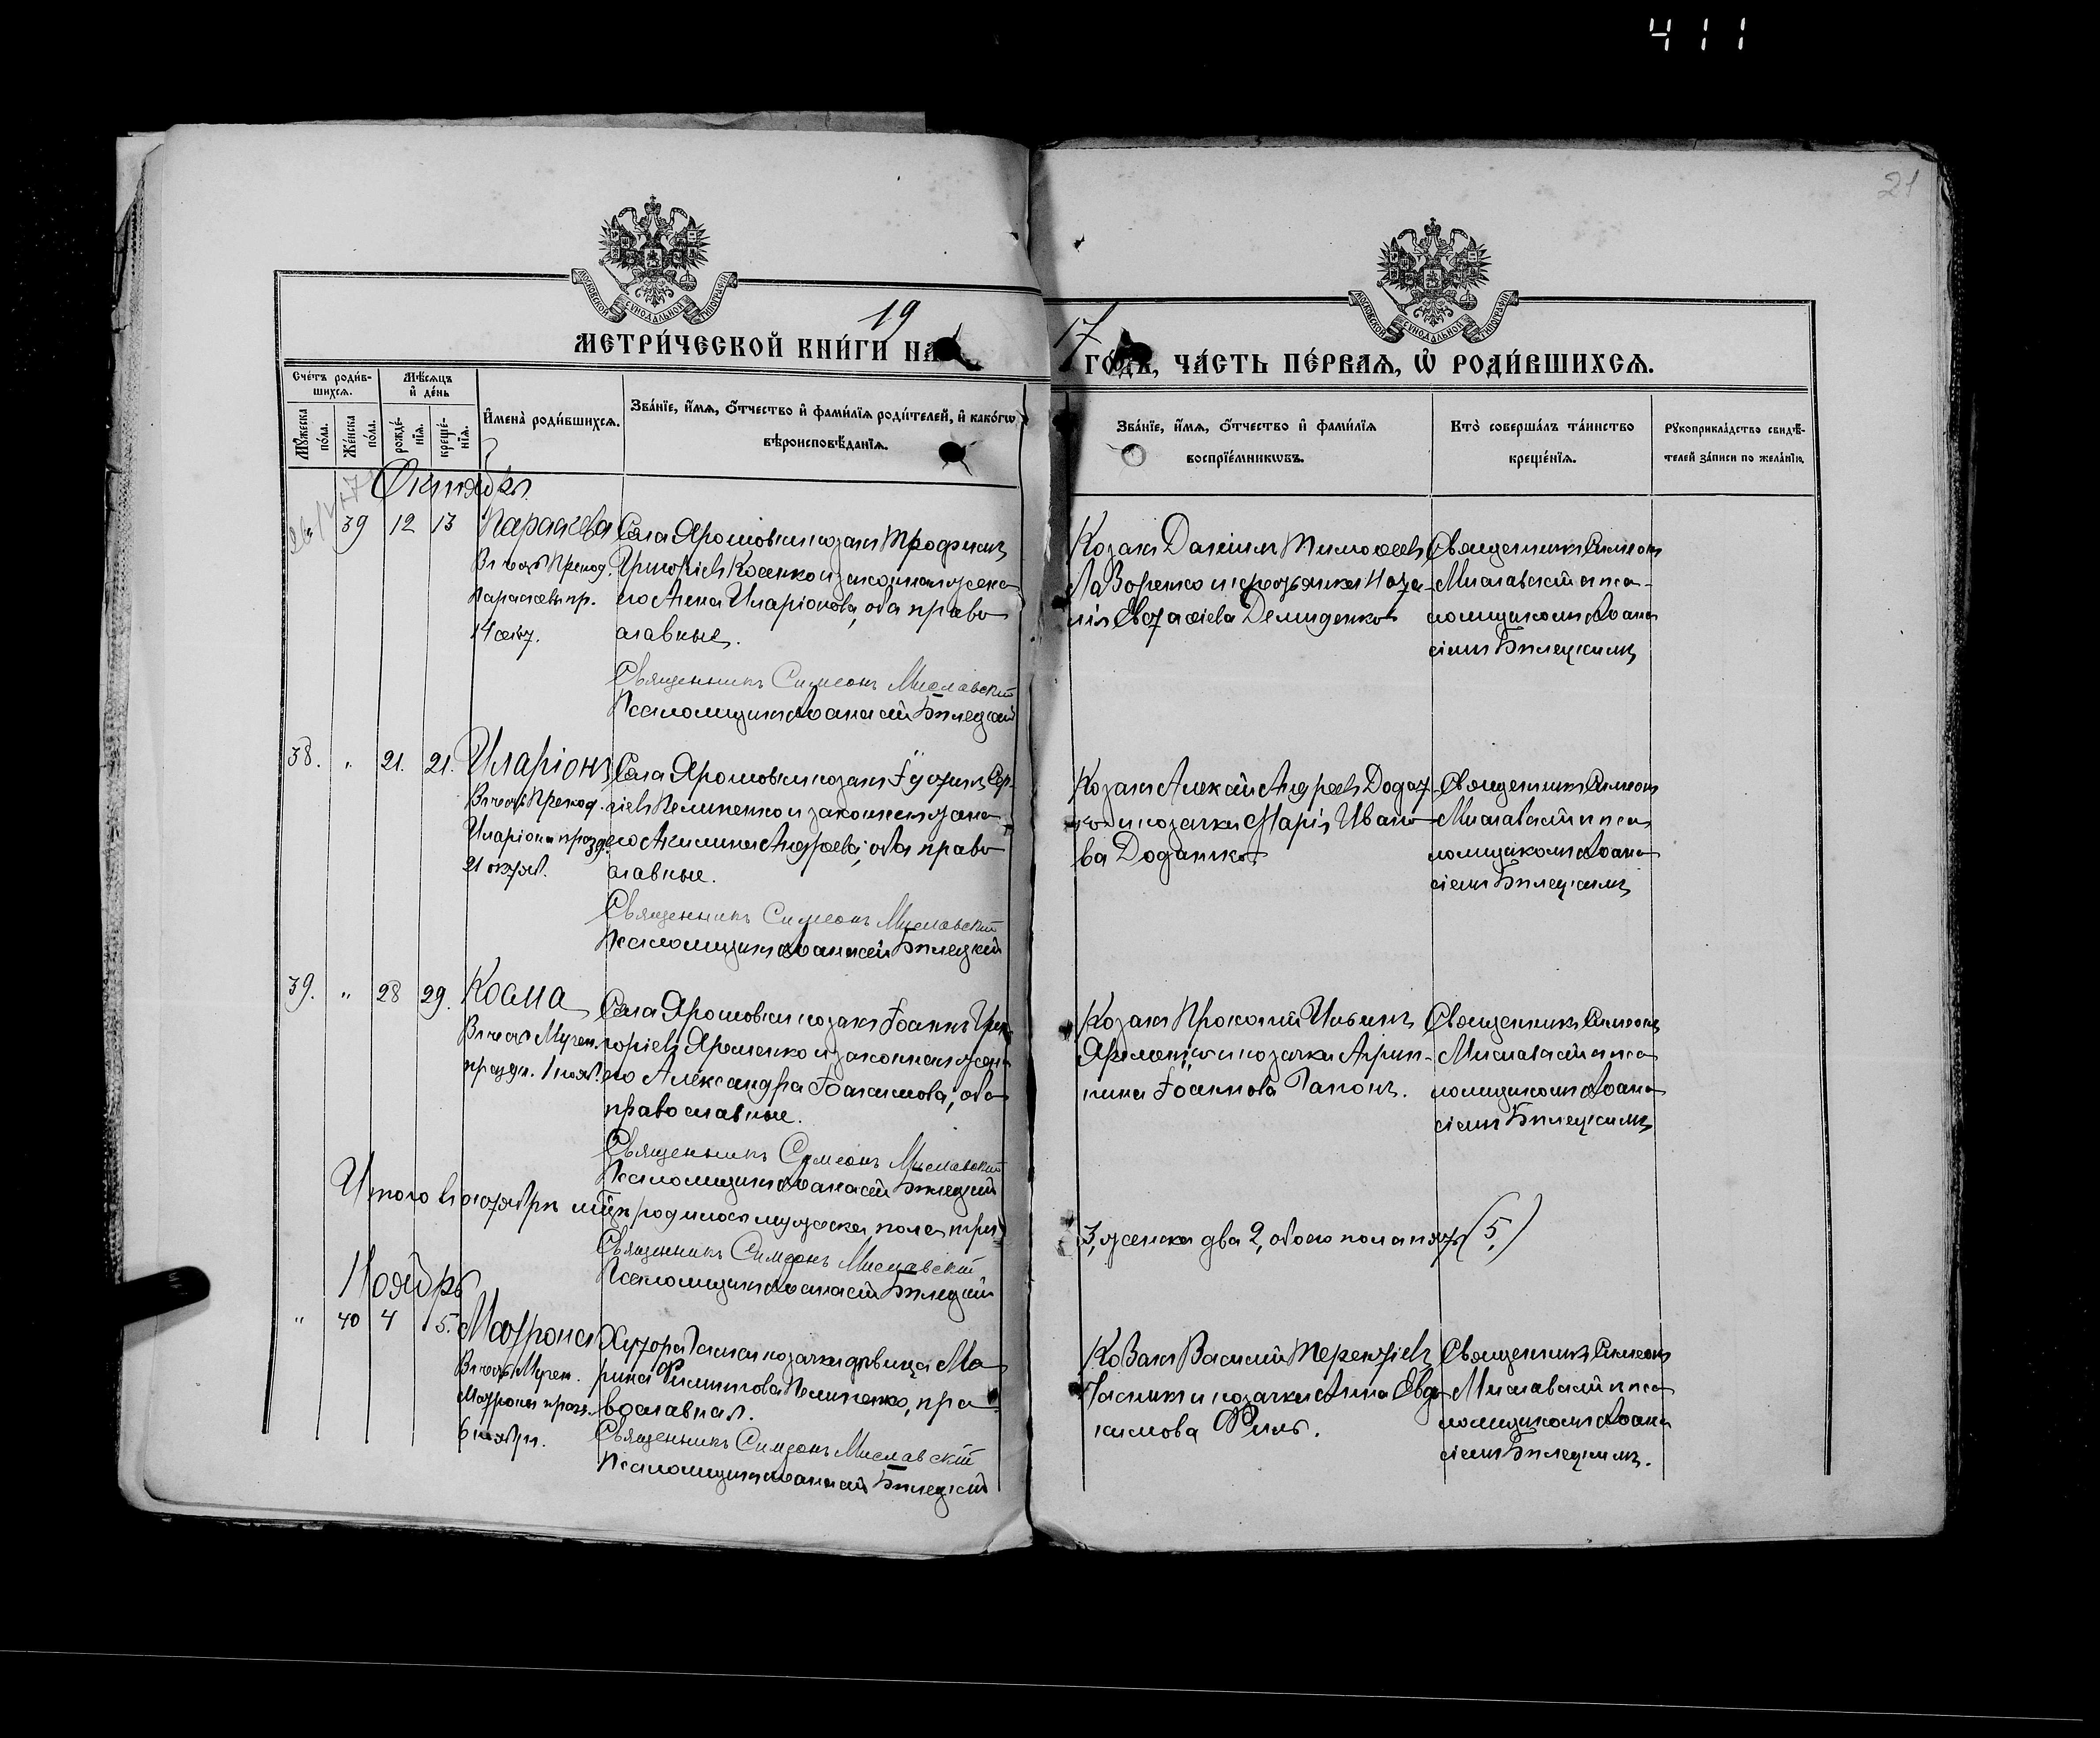 411
21
МОСКОВСКОЙ СѴНОДАЛЬНОЙ ТИПОГРАФІИ
МОСКОВСКОЙ СѴНОДАЛЬНОЙ ТИПОГРАФІИ
19 17
МЕТРИ́ЧЕСКОЙ КНИ́ГИ НА ГО́ДЪ, ЧА́СТЬ ПЕ́РВАѦ, Ѡ҆ РОДИ́ВШИХСѦ.
Сче́тъ роди́в-
шихсѧ.
Мꙋ́жеска по́ла.
Же́нска по́ла.
Мѣ́сѧцъ
и҆ де́нь
рожде́-
нїѧ.
креще́-
нїѧ.
И҆мена̀ роди́вшихсѧ.
Зва́нїе, и҆́мѧ, ѻ҆́тчество и҆ фами́лїѧ роди́телей, и҆ како́гѡ
вѣроисповѣ́данїѧ.
Зва́нїе, и҆́мѧ, ѻ҆́тчество и҆ фами́лїѧ
воспрїе́мникѡвъ.
Кто̀ соверша́лъ та́инство
креще́нїѧ.
Рꙋкоприкла́дство свидѣ́-
телей за́писи по жела́нїю.
Октябрь
39 12 13 Параскева
Въ честь Препод.
Параскевы пр.
14 окт.
Села Ярошовки козакъ Трофимъ
Григоріевъ Косенко и законная жена
его Анна Иларіонова, оба право
славные.
Священникъ Симеонъ Миславскій
Псаломщикъ Аѳанасій Билецкій
Козакъ Даніилъ Тимоѳеевъ
Лазоренко и крестьянка Ната-
лія Евстафіева Демиденкова
Священникъ Симеонъ
Миславскій и пса-
ломщикомъ Аѳана
сіемъ Билецкимъ
38. " 21. 21. Иларіонъ
Въ честь Препод.
Иларіона празд.
21 октяб.
Села Ярошовки козакъ Іустинъ Сер-
гіевъ Пелипенко и законная жена
его Акилина Андреева, оба право
славные.
Священникъ Симеонъ Миславскій
Псаломщикъ Аѳанасій Билецкій
Козакъ Алексій Андреевъ Додат-
ко и козачка Марія Ивано
ва Додатко.
Священникъ Симеонъ
Миславскій и пса
ломщикомъ Аѳана
сіемъ Билецкимъ
39. " 28 29. Косма
Въ честь Мучен.
праздн. 1 нояб.
Села Ярошовки козакъ Іоаннъ Гри
горіевъ Яременко и законная жена
его Александра Іоакимова, оба
православные.
Священникъ Симеонъ Миславскій
Псаломщикъ Аѳанасій Билецкій
Козакъ Прокопій Ильинъ
Яременко и козачка Агрип-
пина Іоаннова Гапонъ.
Священникъ Симеонъ
Миславскій и пса
ломщикомъ Аѳана
сіемъ Билецкимъ
Итого въ октябрѣ мцѣ родилось мужеска пола три
3, женска два 2, обоего пола пять (5.)
Священникъ Симеонъ Миславскій
Псаломщикъ Аѳанасій Билецкій
Ноябрь
" 40 4 5. Матрона
Въ честь Мучен.
Матроны празд.
6 ноября.
Хутора козачка дѣвица Ма
рина Филиппова Пелипенко, пра
вославная.
Священникъ Симеонъ Миславскій
Псаломщикъ Аѳанасій Билецкій
Козакъ Василій Терентіевъ
Часникъ и козачка Анна Евдо
кимова Филь.
Священникъ Симеонъ
Миславскій и пса
ломщикомъ Аѳана
сіемъ Билецкимъ.